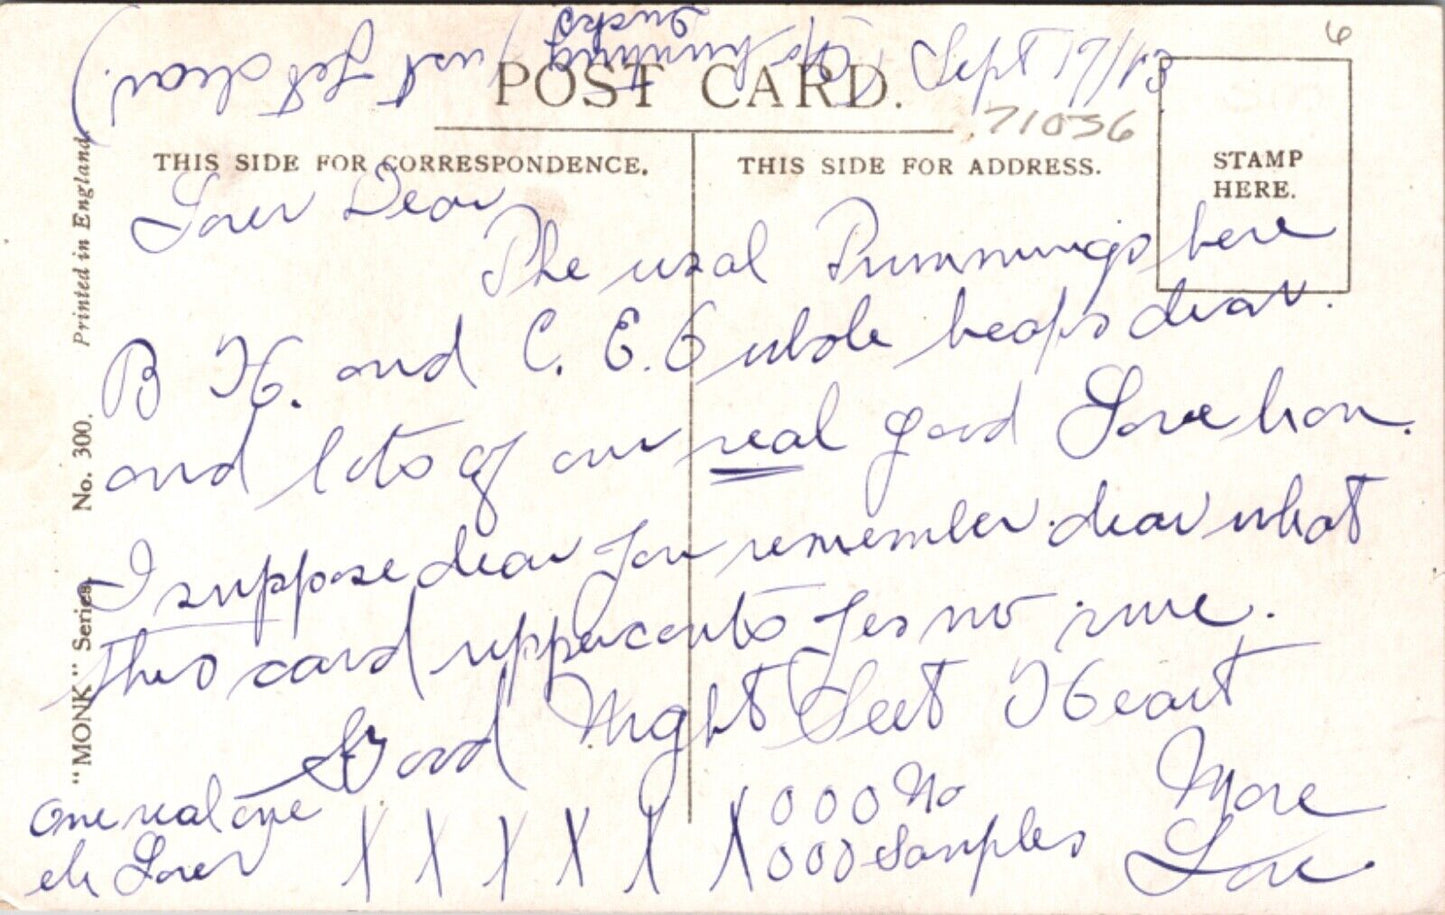 Sept 17/13
6
71056
POST CARD.
THIS SIDE FOR CORRESPONDENCE.
THIS SIDE FOR ADDRESS.
STAMP
HERE.
"MONK" Series No. 300. Printed in England
Lover Dear
The usal Trimmings here
B H. and C. E. G whole heaps dear.
and lots of our real good Love hon.
I suppose dear you remember dear what
this card uppercents yes no sure.
Good Night Seet Heart
one real one
eh Lover
X X X X X X
000 No
000 Samples
More
Love
Go hunting
Ducks
just yet dear.)